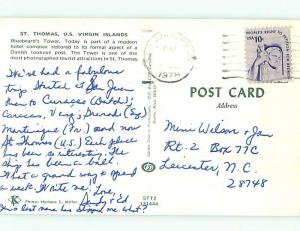 ST. THOMAS, U.S. VIRGIN ISLANDS
Bluebeard's Tower. Today is part of a modern
hotel complex restored to its formal aspect of a
Danish lookout post. The Tower is one of the
most photographed tourist attractions in St. Thomas.
We've had a fabulous
trip. Started San Juan
then to Curacao (Dutch);
Caracas, Ven; Grenada (Eng)
Martinique (Fr.) and now
St Thomas (U.S.) Each place
has been so interesting. The
ship has been a ball.
What a grand way to spend
a week. Write me. Love,
Sandy & Ed
K Photo: Herbert C. Miller
1978
10c
POST CARD
Address
Mimi Wilson & Jan
Rt. 2 Box 77C
Leicester, N.C.
28748
STT2